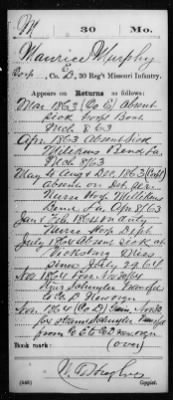 M 30 Mo.
Maurice Murphy
E
Corp., Co. D, 30 Reg't Missouri Infantry.
Appears on Returns as follows:
Mar 1863 (Co E) Absent
sick Hosp Boat
Mch 8 63
Apr 1863 Absent Sick
Millikens Bend La.
Mch 8/63
May to Aug & Dec 1863
absent on Det. ser.
Nurse Hosp Millikens
Bend La Apr 8/63
Jan & Feb 1864 on duty
Nurse Hosp Dept
July 1864 Absent sick at
Vicksburg Miss
since July 29, 64
Nov. 1864
to Co D New org
Nov. 1864 (Co D)
from E to Co D new org
Book mark: (over)
(546) Copyist.